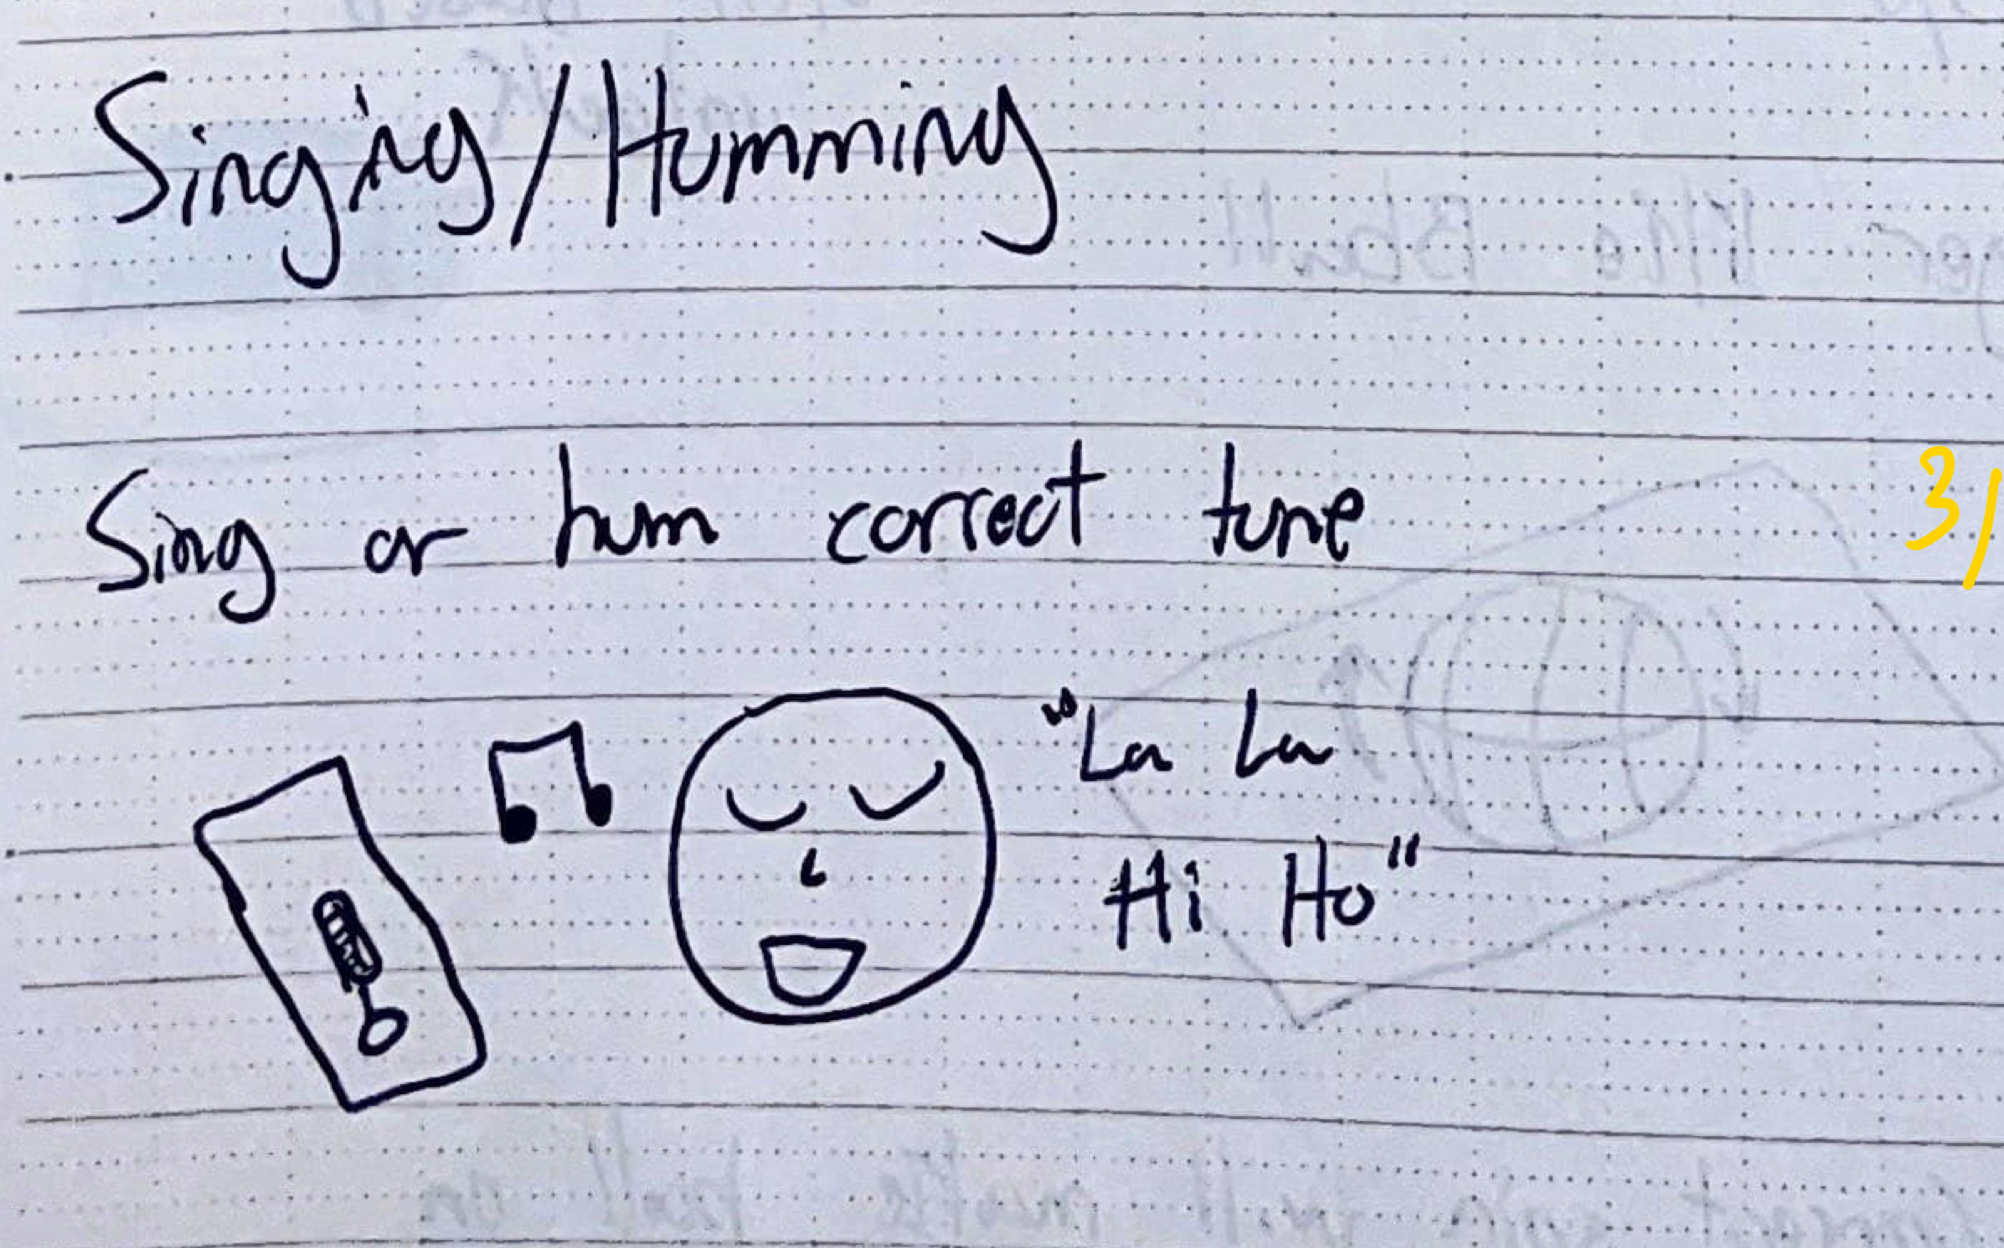 Singing/Humming
Sing or hum correct tune
3/
"La La
Hi Ho"